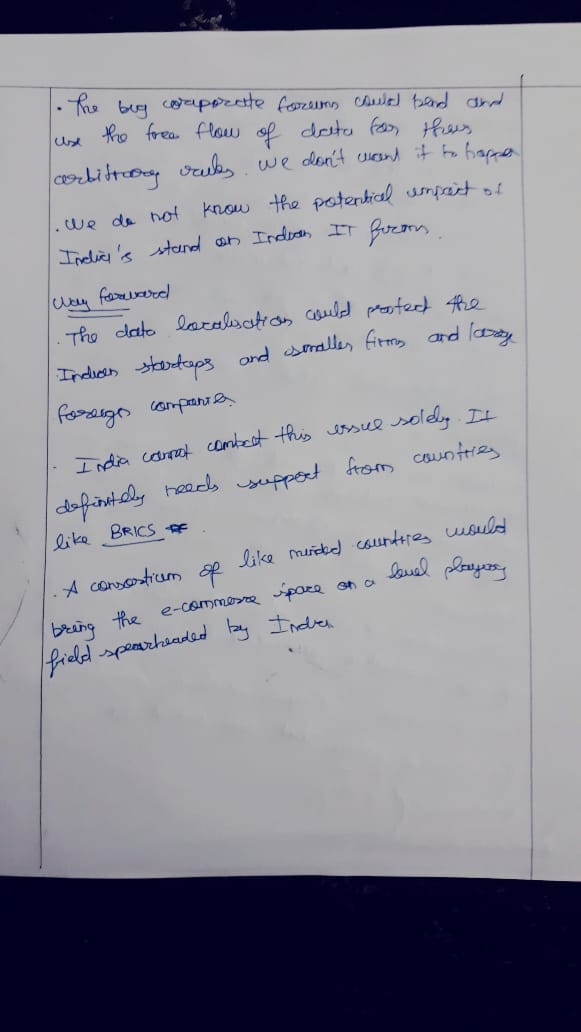 . The big corporate forums could bend and
use the free flow of data for their
arbitrary rules. We don't want it to happen
. We do not know the potential impact of
India's stand on Indian IT forum.
Way forward
. The data localisation could protect the
Indian startups and smaller firms and
foreign companies.
. India cannot combat this issue solely. It
definitely needs support from countries
like BRICS
. A consortium of like minded countries would
bring the e-commerce space on a level playing
field spearheaded by India